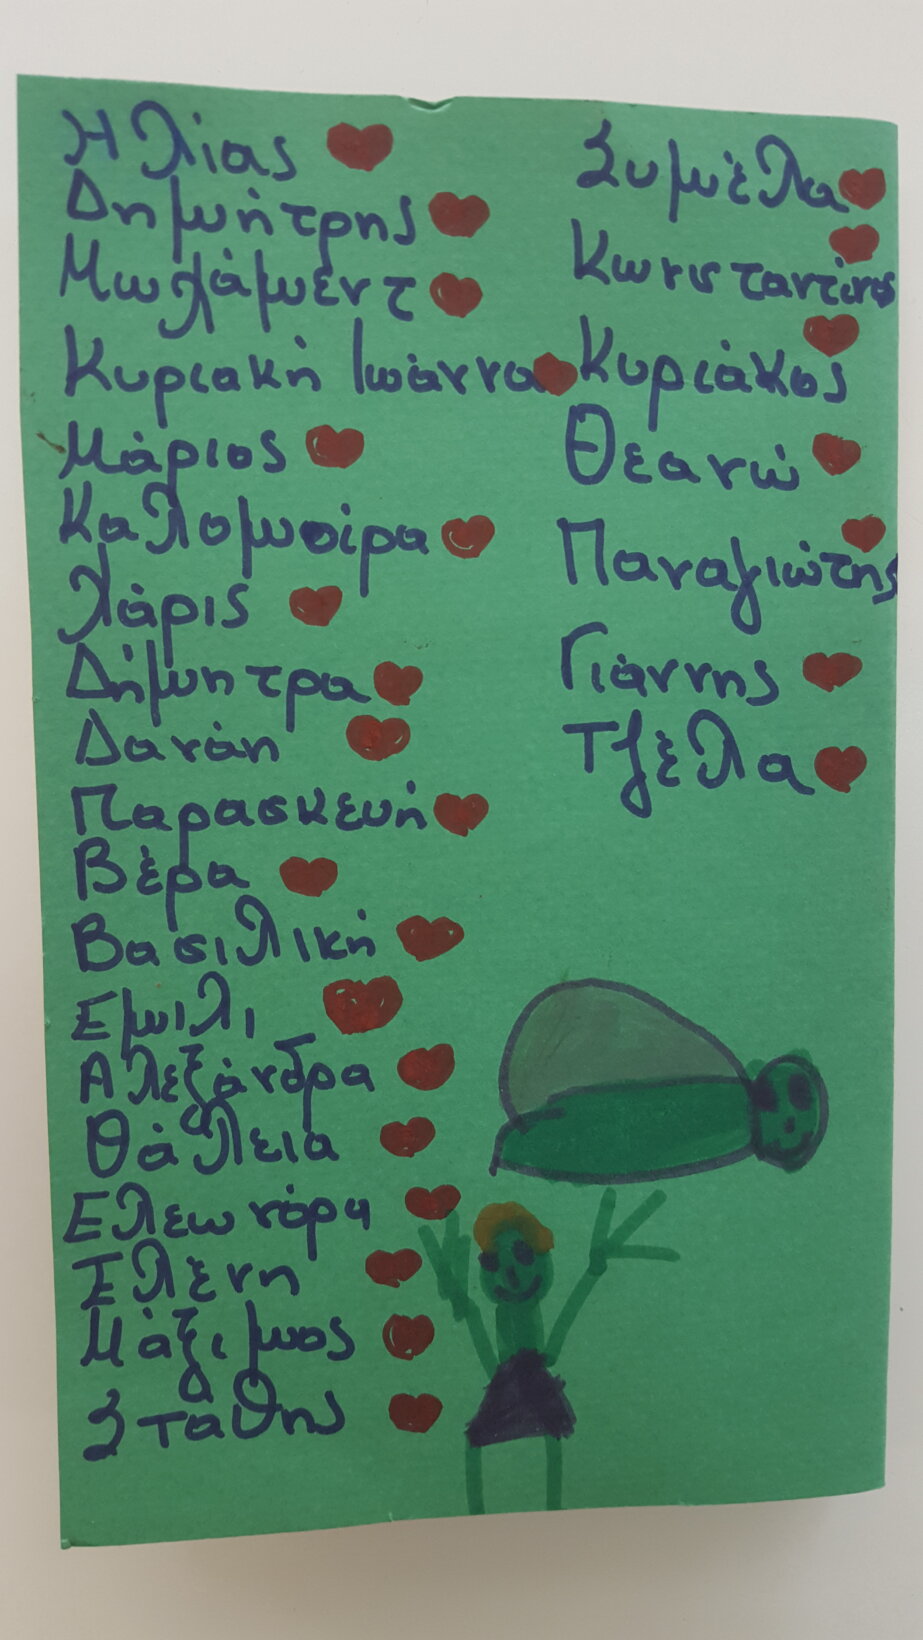 Ηλίας
Δημήτρης
Μωλάμεντ
Κυριακή Ιωάννα
Μάριος
Καλομοίρα
Λάρις
Δήμητρα
Δανάη
Παρασκευή
Βέρα
Βασιλική
Εμιλι
Αλεξάνδρα
Θάλεια
Ελεωνόρα
Ελένη
Μάξιμος
Σταθης
Συμέλα
Κωνσταντίνος
Κυριάκος
Θεανώ
Παναγιώτης
Γιάννης
Τζέλα